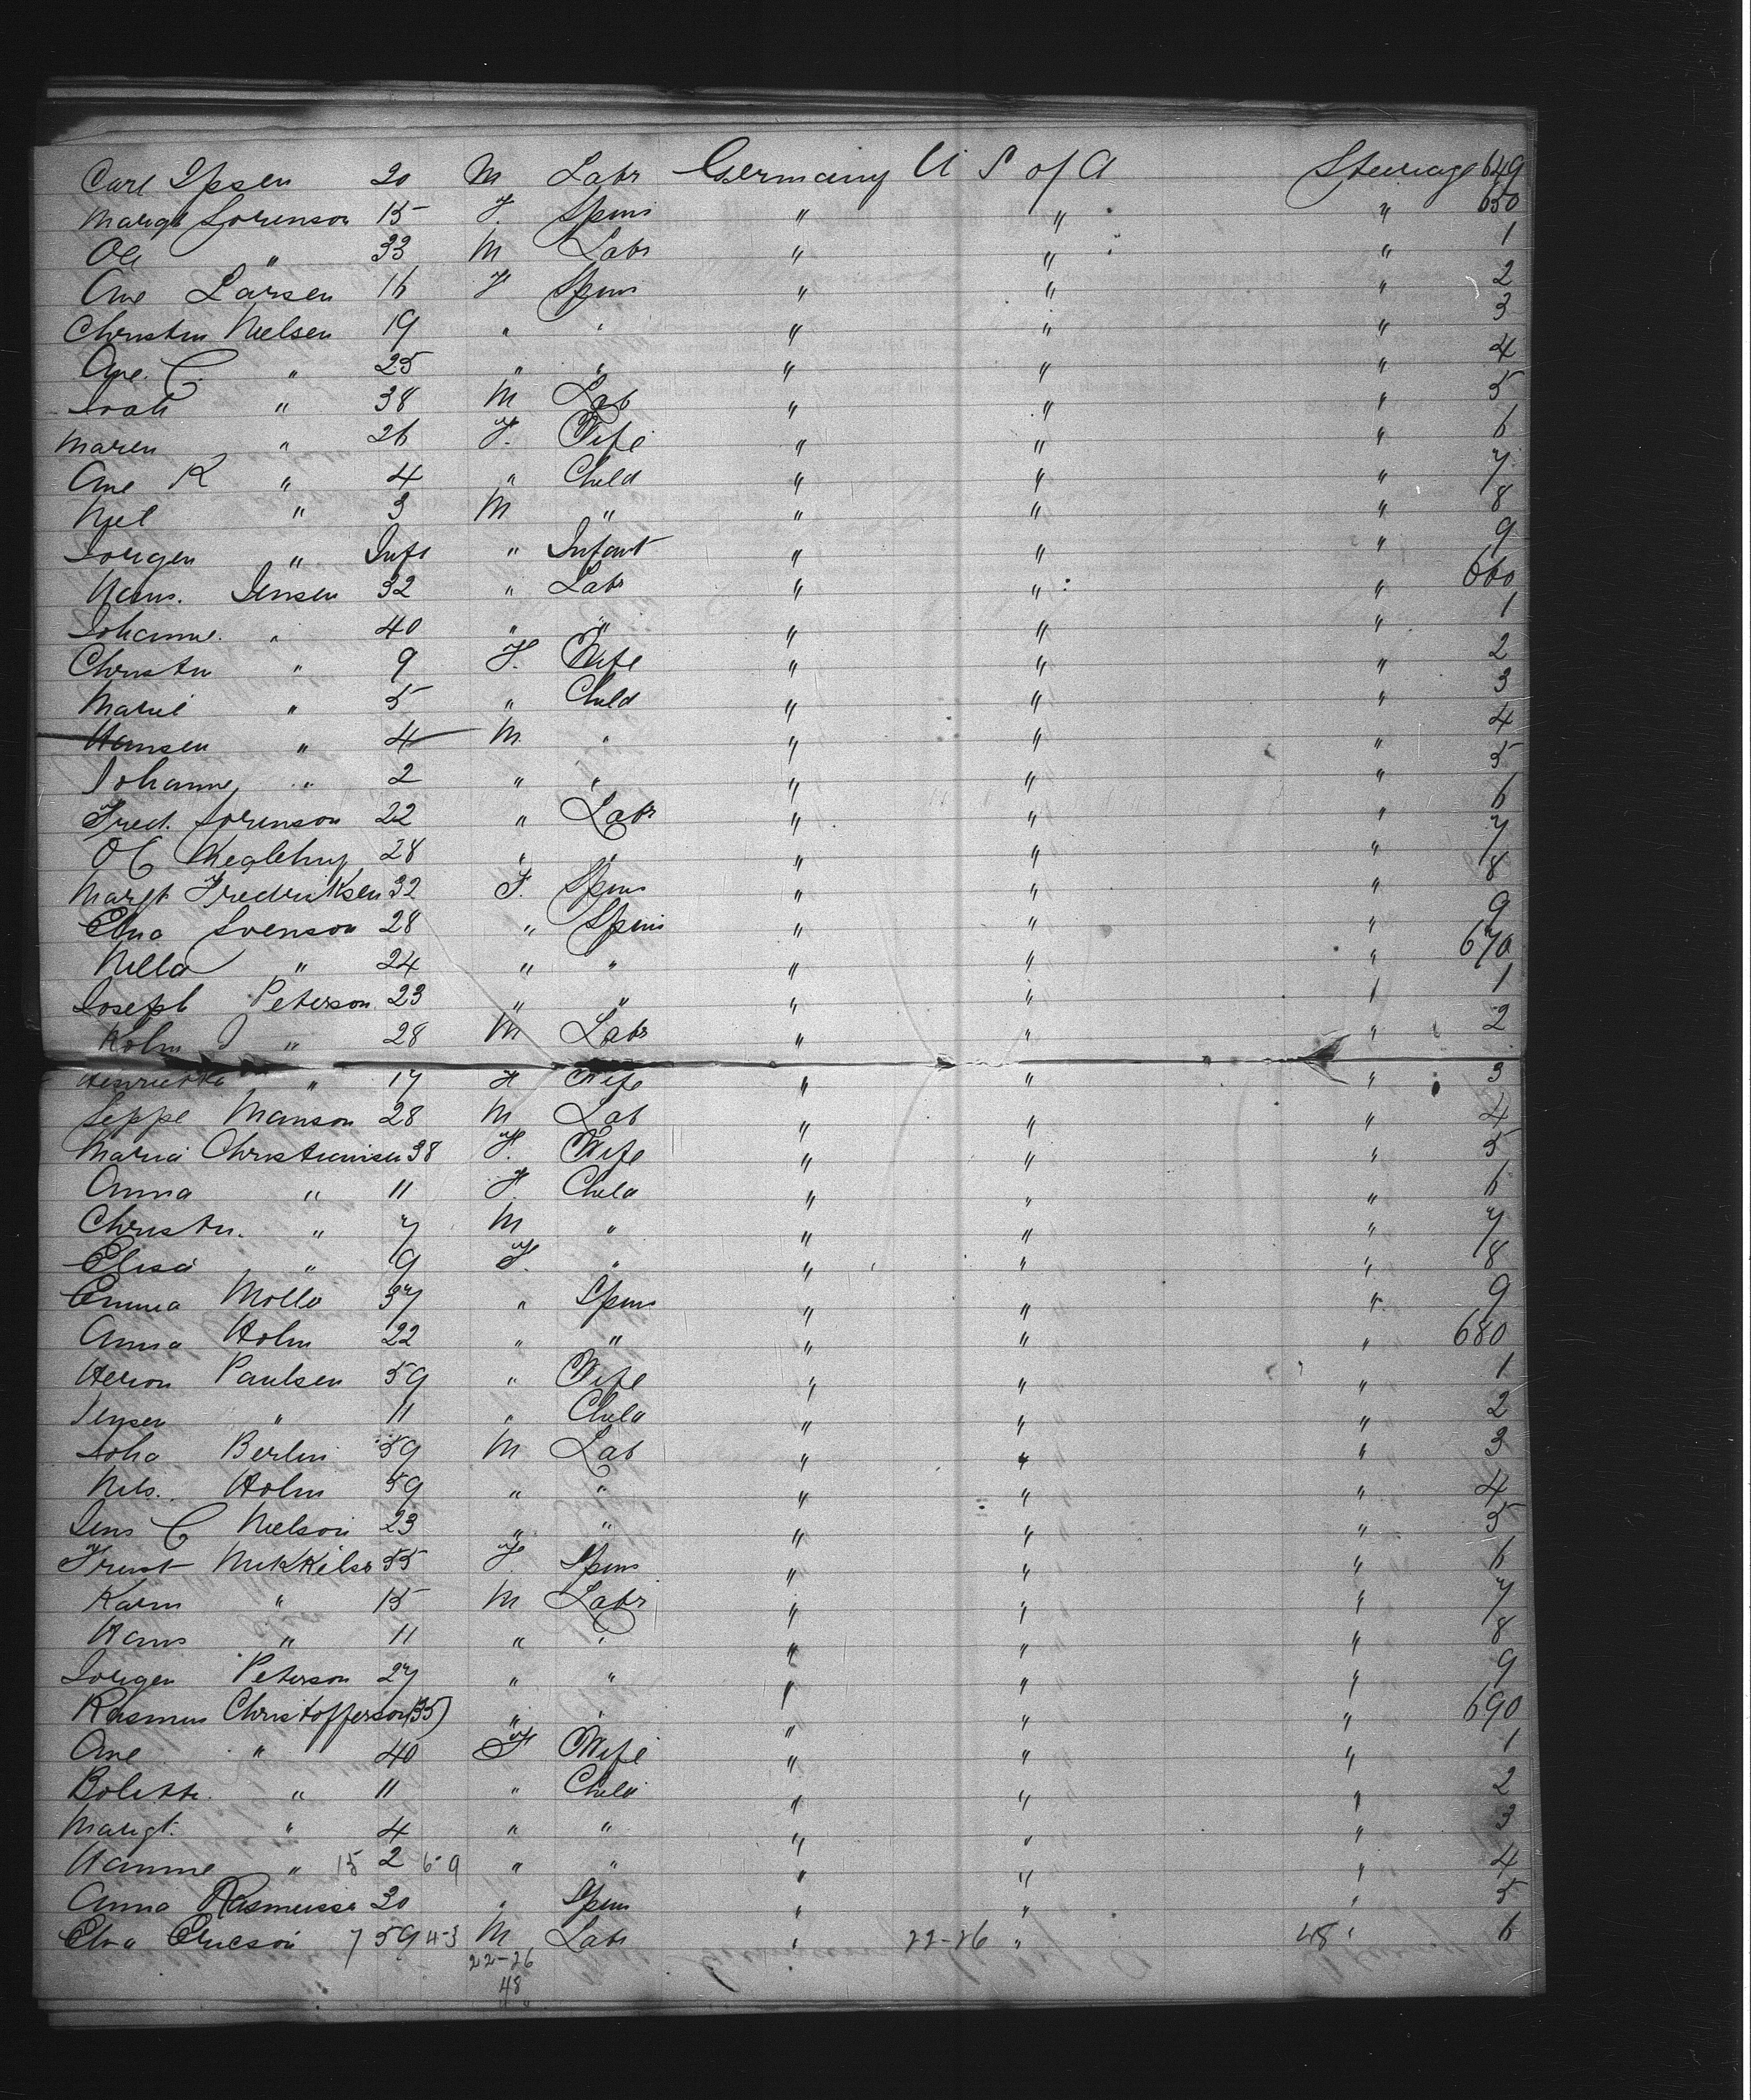 Carl Ipsen 20 M Labr Germany U S of A Steerage 649
Margt Sorenson 15 F. Spins " " " 650
Ole " 33 M Labr " " " 1
Ane Larsen 16 F Spins " " " 2
Christin Nielsen 19 " " " " " 3
Ane. C. " 25 " " " " " 4
" 38 M Lab " " " 5
Maren " 26 F. Wife " " " 6
Ane K " 4 " Child " " " 7
Niel " 3 M " " " " 8
Jorgen " Inft " Infant " " " 9
Hans. Jensen 32 " Labr " " " 660
Johanne. " 40 " " " " " 1
Christin " 9 F. Wife " " " 2
Marie " 5 " Child " " " 3
Hansen " 4 M " " " " 4
Johanne " 2 " " " " " 5
Fred. Sorenson 22 " Labr " " " 6
O C 28 " " " " " 7
Margt Fredriksen 32 F. Spins " " " 8
Elna Svenson 28 " Spins " " " 9
Nilla " 24 " " " " " 670
Joseph Peterson 23 " " " " " 1
Holm J " 28 M Labr " " " 2
Henriette " 17 F Wife " " " 3
Seppe Manson 28 M Lab " " " 4
Maria Christiansen 38 F. Wife " " " 5
Anna " 11 F. Child " " " 6
Christn. " 7 M " " " " 7
Elisa " 9 F. " " " " 8
Emma Mollo 37 " Spins " " " 9
Anna Holm 22 " " " " " 680
Paulsen 59 " Wife " " " 1
Jensen " 11 " Child " " " 2
Berlin 59 M Lab " " " 3
Nils. Holm 59 " " " " " 4
Jens C Nielson 23 " " " " " 5
Mikkelso 55 F. Spins " " " 6
Karm " 15 M Labr " " " 7
Hans " 11 " " " " " 8
Jorgen Peterson 27 " " " " " 9
Rasmus Christofferson (35) " " " " " 690
Ane " 40 F Wife " " " 1
Bolette. " 11 " Child " " " 2
Margt. " 4 " " " " " 3
Hanne " 15 2 6-9 " " " " " 4
Anna Rasmusse 20 " Spins " " " 5
Elna Ericson 7 59 4-3 M Labr " 22-26 " 48 " 6
22-26
48